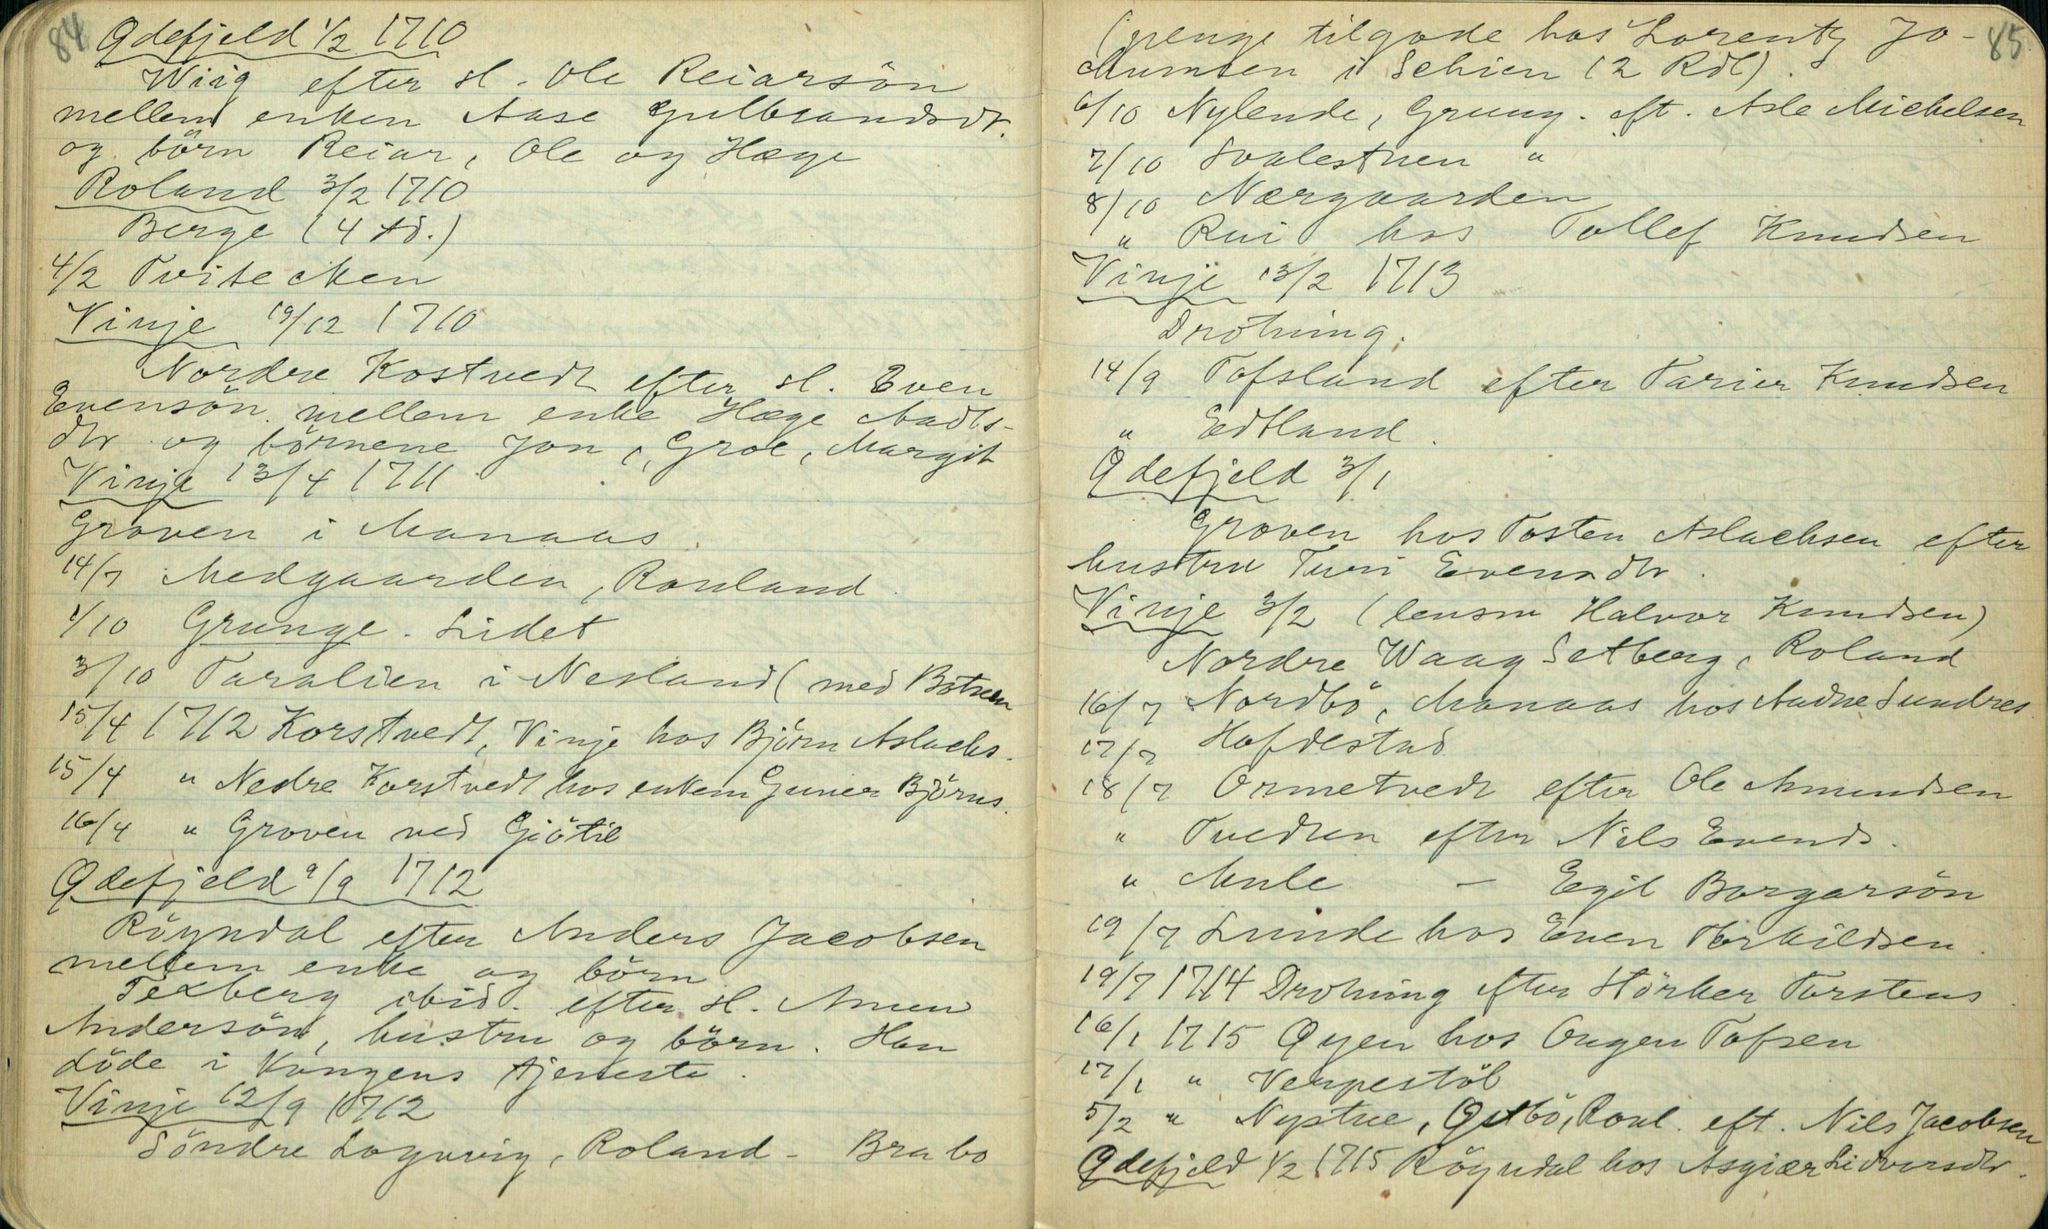 84
Qdefjeld 1/2 1710
Wiig efter sl. Ole Reiarsön
mellem enken Aase Gulbrandsdr.
og börn Reiar, Ole og Hæge
Roland 3/2 1710
Berge (4 td.)
4/2 Tvitecken
Vinje 19/12 1710
Nordre Kostvedt efter sl. Even
Evensön mellem enke Hæge Aadls-
dtr og börnene Jon, Groe, Margit
Vinje 13/4 1711
Groven i Manaas
14/7 Medgaarden, Rouland.
1/10 Grunge. Lidet
3/10 Taralien i Nesland (med Botnen
15/4 1712 Korstvedt, Vinje hos Björn Aslachs.
15/4 " Nedre Korstvedt hos enkem Guner Björns.
16/4 " Groven ved Gjötil
Qdefjeld 9/9 1712
Röyndal efter Anders Jacobsen
mellem enke og börn
Texberg ibid. efter sl. Amun
Andersön, hustru og börn. Han
döde i Kongens tjeneste.
Vinje 12/9 1712
Söndre Lognvig, Roland - Bra bo
85
(penge tilgode hos Lorentz Jo-
chumsen i Schien 12 Rdl).
6/10 Nylende, Grung. eft. Asle Michelsen
7/10 Svalestuen "
8/10 Nærgaarden
" Rui hos Tollef Knudsen
Vinje 13/2 1713
Drotning.
14/9 Tofsland efter Tarier Knudsen
" Edtland.
Qdefjeld 3/1
Groven hos Tosten Aslachsen efter
hustru Turi Evensdtr.
Vinje 3/2 (lensm Halvor Knudsen)
Nordre Waag Setberg, Roland
16/7 Nordbö, Manaas hos Aadne Sundres.
17/7 Hofdestad
18/7 Ormetvedt efter Ole Amundsen
" Tvedten efter Nils Evends.
" Mule - Egil Borgarsön
19/7 Lunde hos Even Torkildsen.
19/7 1714 Drotning efter Störker Torstens.
16/1 1715 Øyen hos Ougen Tofsen
17/1 " Verpestöl
5/2 " Nystue, Qstbö, Roul. eft. Nils Jacobsen
Qdefjeld 1/2 1715 Röyndal hos Asgiær Lidvorsdtr.